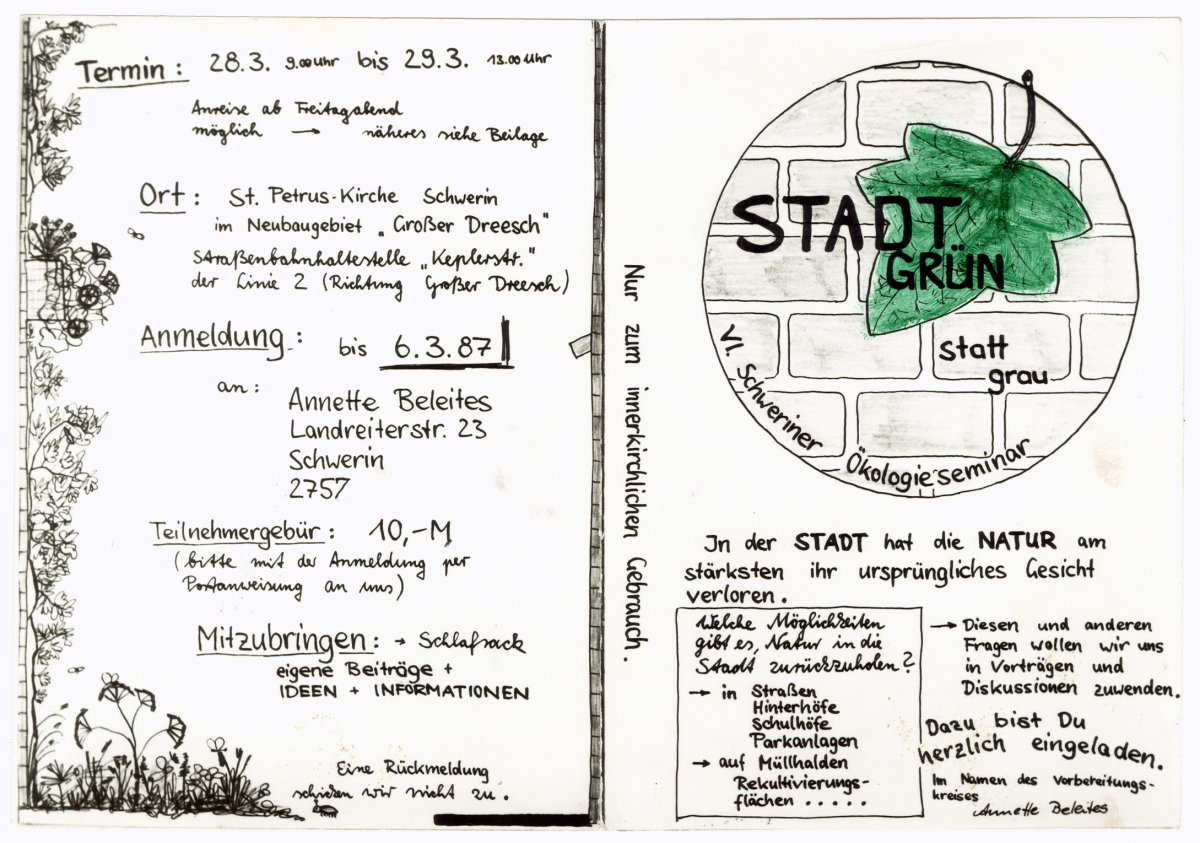 Termin: 28.3. 9.00 Uhr bis 29.3. 13.00 Uhr
Anreise ab Freitagabend
möglich → näheres siehe Beilage
Ort: St. Petrus-Kirche Schwerin
im Neubaugebiet „Großer Dreesch"
Straßenbahnhaltestelle „Keplerstr."
der Linie 2 (Richtung Großer Dreesch)
Anmeldung: bis 6.3.87
an: Annette Beleites
Landreiterstr. 23
Schwerin
2757
Teilnehmergebür: 10,-M
(bitte mit der Anmeldung per
Postanweisung an uns)
Mitzubringen: → Schlafsack
eigene Beiträge +
IDEEN + INFORMATIONEN
Eine Rückmeldung
schicken wir nicht zu.
Nur zum innerkirchlichen Gebrauch.
STADT
GRÜN
statt
grau
VI. Schweriner Ökologieseminar
In der STADT hat die NATUR am
stärksten ihr ursprüngliches Gesicht
verloren.
Welche Möglichkeiten
gibt es, Natur in die
Stadt zurückzuholen?
→ in Straßen
Hinterhöfe
Schulhöfe
Parkanlagen
→ auf Müllhalden
Rekultivierungs-
flächen .....
→ Diesen und anderen
Fragen wollen wir uns
in Vorträgen und
Diskussionen zuwenden.
Dazu bist Du
herzlich eingeladen.
Im Namen des Vorbereitungs-
kreises
Annette Beleites